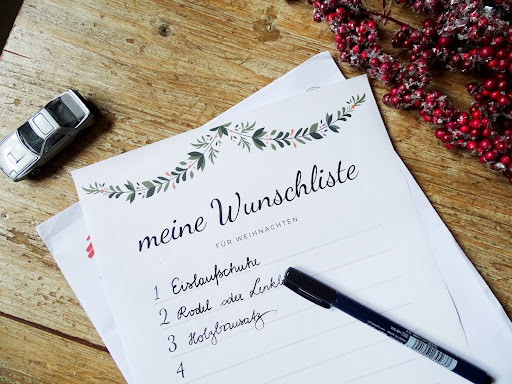 meine Wunschliste
FÜR WEIHNACHTEN
1 Eislaufschuhe
2 Rodel oder
3 Holzbausatz
4